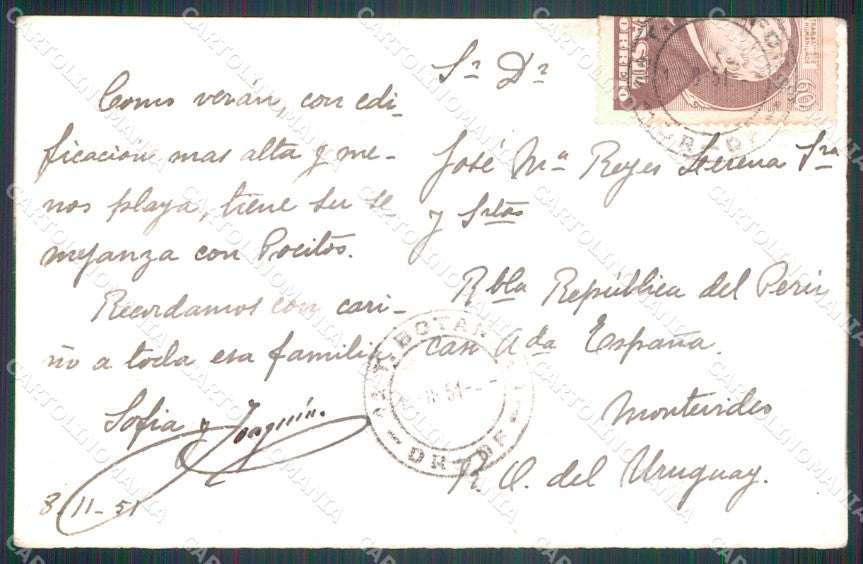 Como verán, con edi-
ficación mas alta y me-
nos playa, tiene su se
mejanza con Pocitos.
Recordamos con cari-
ño a toda esa familia
Sofia y Joaquín.
8-11-51
Sr Dr
José Ma Reyes Lerena Sra
y Srtas
Rbla República del Perú
casi Avda España.
Montevideo
R. O. del Uruguay.
CORREIO
60
51
DR-DF
BOTAF
51
DR-DF
CARTOLINOMANIA